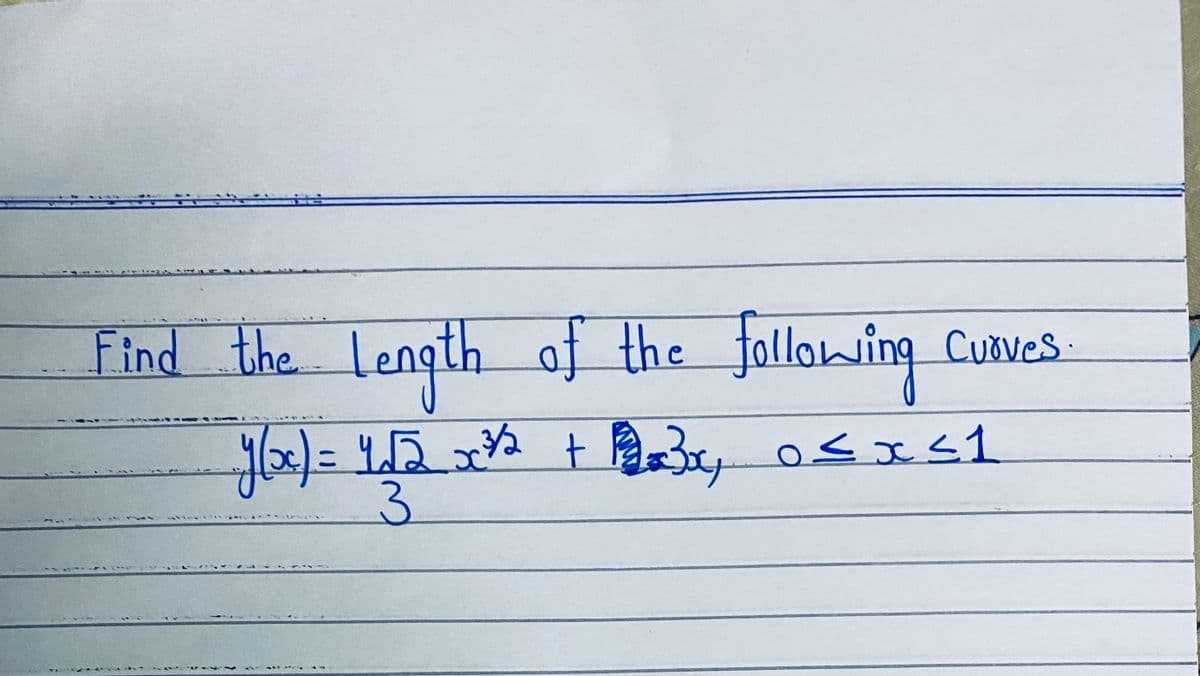 Find the length of the following Curves.
y(x) = 4√2/3 x^3/2 + 3x, 0 ≤ x ≤ 1